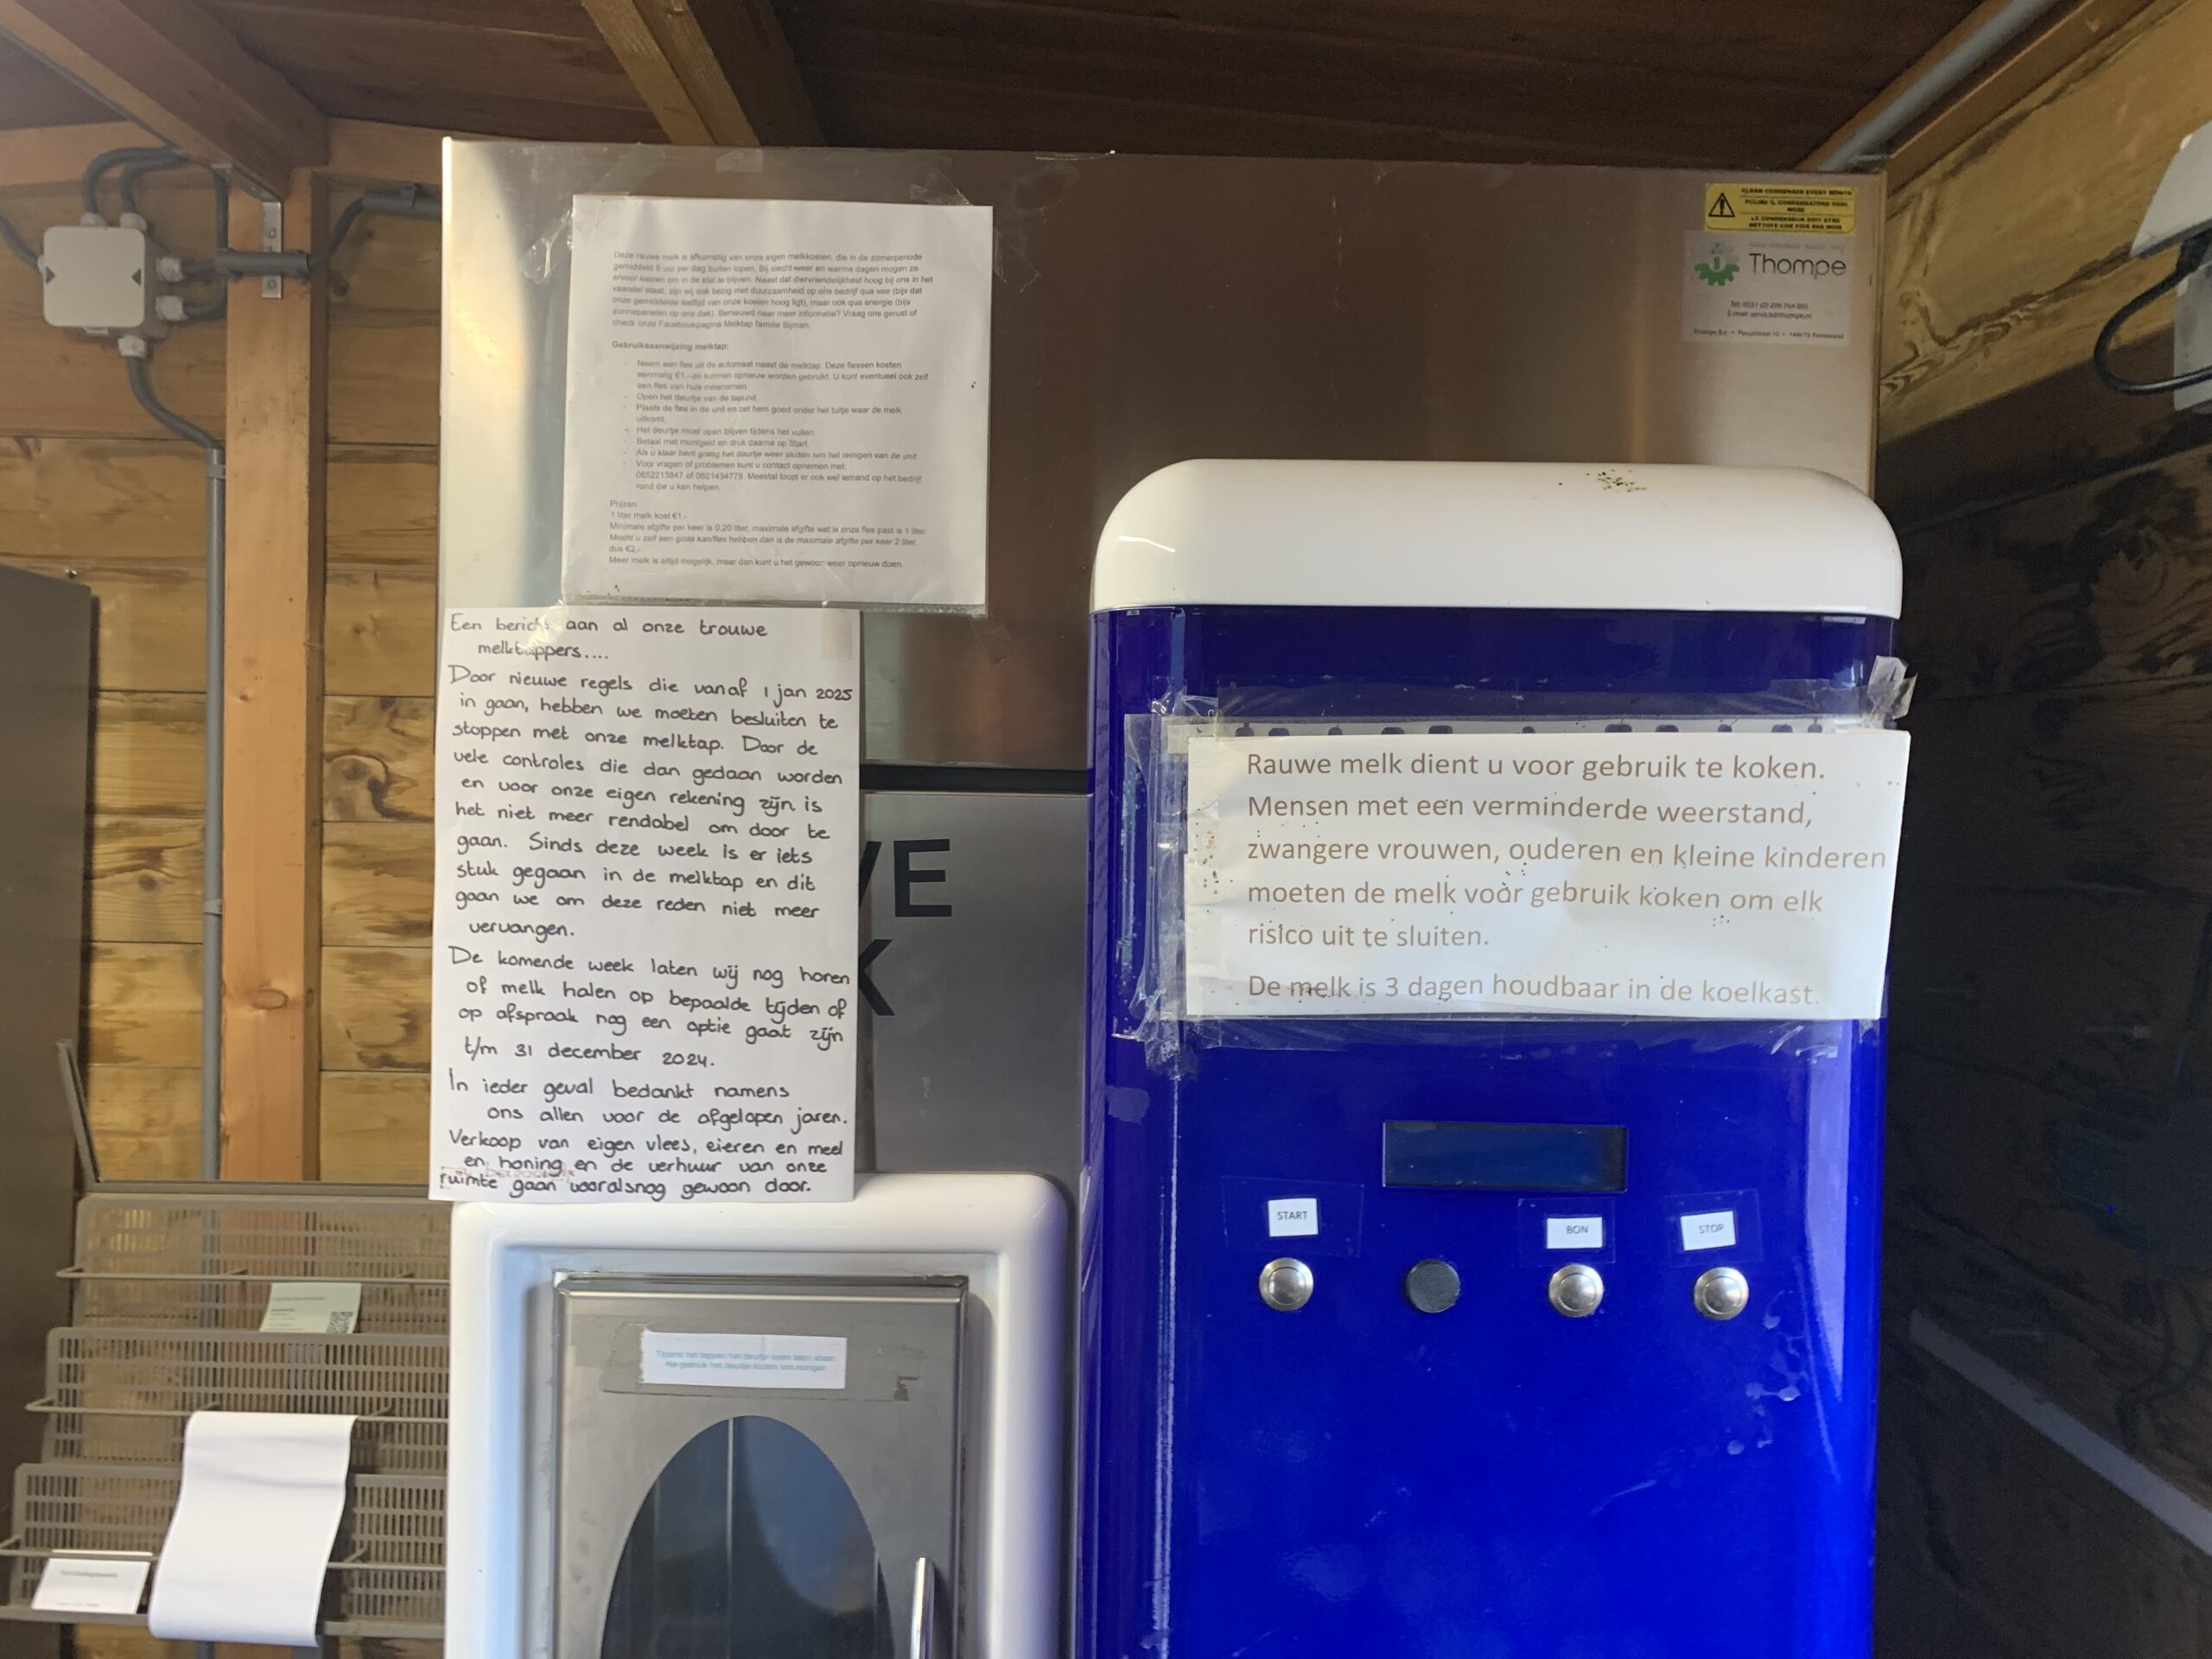 Deze rauwe melk is afkomstig van onze eigen melkkoeien, die in de zomerperiode
gemiddeld 8 uur per dag buiten lopen. Bij slecht weer en warme dagen mogen ze
ervoor kiezen om in de stal te blijven. Naast dat diervriendelijkheid hoog bij ons in het
vaandel staat, zijn wij ook bezig met duurzaamheid op ons bedrijf qua vee (bijv dat
onze gemiddelde leeftijd van onze koeien hoog ligt), maar ook qua energie (bijv
zonnepanelen op ons dak). Benieuwd naar meer informatie? Vraag ons gerust of
check onze Facebookpagina Melktap familie
Gebruiksaanwijzing melktap:
- Neem een fles uit de automaat naast de melktap. Deze flessen kosten
eenmalig €1,- en kunnen opnieuw worden gebruikt. U kunt eventueel ook zelf
een fles van huis meenemen.
- Open het deurtje van de tapunit.
- Plaats de fles in de unit en zet hem goed onder het tuitje waar de melk
uitkomt.
- Het deurtje moet open blijven tijdens het vullen.
- Betaal met muntgeld en druk daarna op Start.
- Als u klaar bent graag het deurtje weer sluiten ivm het reinigen van de unit.
- Voor vragen of problemen kunt u contact opnemen met
0652213847 of 0621434779. Meestal loopt er ook wel iemand op het bedrijf
rond die u kan helpen.
Prijzen:
1 liter melk kost €1,-
Minimale afgifte per keer is 0,20 liter, maximale afgifte wat is onze fles past is 1 liter.
Mocht u zelf een grote kan/fles hebben dan is de maximale afgifte per keer 2 liter,
dus €2,-
Meer melk is altijd mogelijk, maar dan kunt u het gewoon weer opnieuw doen.
CLEAN CONDENSER EVERY MONTH
PULIRE IL CONDENSATORE OGNI
MESE
LE CONDENSEUR DOIT ETRE
NETTOYE UNE FOIS PAR MOIS
Thompe
E-mail: service@thompe.nl
Een bericht aan al onze trouwe
melktappers....
Door nieuwe regels die vanaf 1 jan 2025
in gaan, hebben we moeten besluiten te
stoppen met onze melktap. Door de
vele controles die dan gedaan worden
en voor onze eigen rekening zijn is
het niet meer rendabel om door te
gaan. Sinds deze week is er iets
stuk gegaan in de melktap en dit
gaan we om deze reden niet meer
vervangen.
De komende week laten wij nog horen
of melk halen op bepaalde tijden of
op afspraak nog een optie gaat zijn
t/m 31 december 2024.
In ieder geval bedankt namens
ons allen voor de afgelopen jaren.
Verkoop van eigen vlees, eieren en meel
en honing en de verhuur van onze
ruimte gaan vooralsnog gewoon door.
WE
K
Rauwe melk dient u voor gebruik te koken.
Mensen met een verminderde weerstand,
zwangere vrouwen, ouderen en kleine kinderen
moeten de melk voor gebruik koken om elk
risico uit te sluiten.
De melk is 3 dagen houdbaar in de koelkast.
START
BON
STOP
Tijdens het tappen het deurtje open laten staan.
Na gebruik het deurtje sluiten ivm reinigen